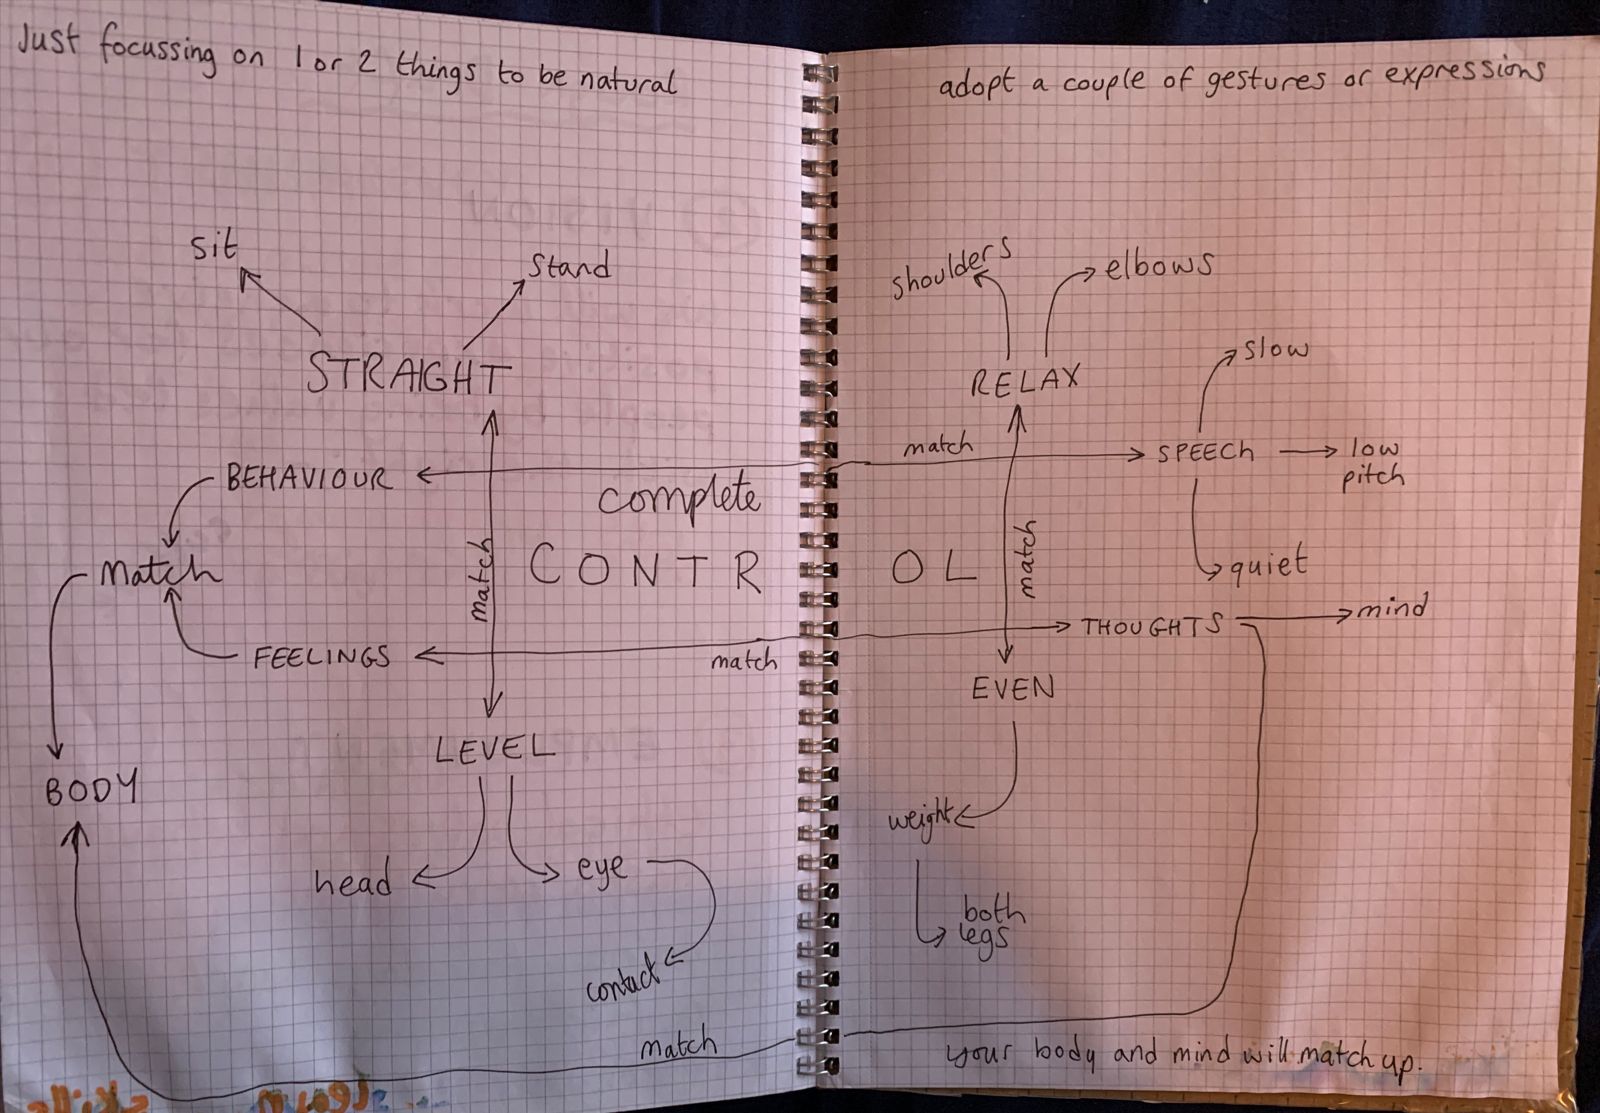 Just focussing on 1 or 2 things to be natural
sit
stand
STRAIGHT
BEHAVIOUR
complete
match
Match
CONTR
FEELINGS
match
LEVEL
BODY
head
eye
contact
match
adopt a couple of gestures or expressions
shoulders
elbows
slow
RELAX
match
SPEECH
low
pitch
match
OL
quiet
mind
THOUGHTS
EVEN
weight
both
legs
your body and mind will match up.